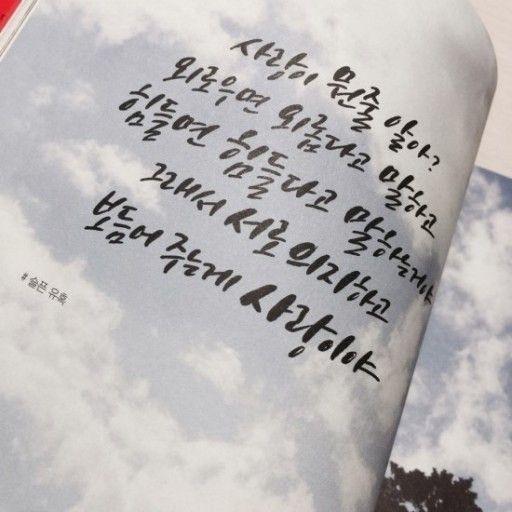 사랑이 뭔줄 알아?
외로우면 외롭다고 말하고
힘들면 힘들다고 말하는거야
그래서 서로 의지하고
보듬어 주는게 사랑이야
# 슬픈 유혹